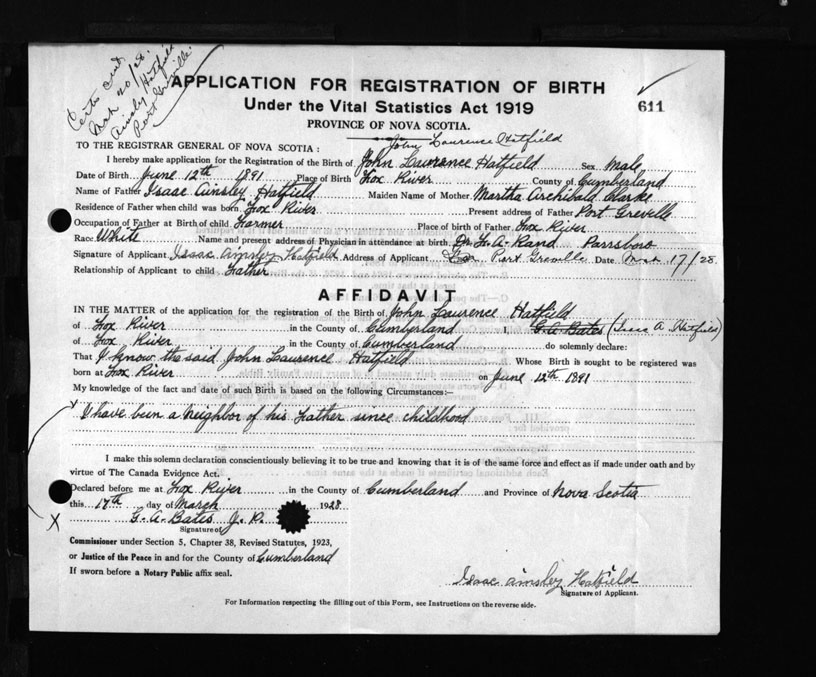 Certis and.
Mch 20/28.
Ainsley Hatfield
Port Greville.
APPLICATION FOR REGISTRATION OF BIRTH
Under the Vital Statistics Act 1919
611
PROVINCE OF NOVA SCOTIA.
John Laurence Hatfield
TO THE REGISTRAR GENERAL OF NOVA SCOTIA:
I hereby make application for the Registration of the Birth of John Lawrence Hatfield Sex Male
Date of Birth June 12th 1891 Place of Birth Fox River County of Cumberland
Name of Father Isaac Ainsley Hatfield Maiden Name of Mother Martha Archibald Clarke
Residence of Father when child was born Fox River Present address of Father Port Greville
Occupation of Father at Birth of child Farmer Place of birth of Father Fox River
Race White Name and present address of Physician in attendance at birth Dr. F. A. Rand Parrsboro
Signature of Applicant Isaac Ainsley Hatfield Address of Applicant Port Greville Date Mch 17/28
Relationship of Applicant to child Father
AFFIDAVIT
IN THE MATTER of the application for registration of the Birth of John Laurence Hatfield
of Fox River in the County of Cumberland I, G. A. Bates (Isaac A. Hatfield)
of Fox River in the County of Cumberland do solemnly declare:
That I know the said John Laurence Hatfield Whose Birth is sought to be registered was
born at Fox River on June 12th 1891
My knowledge of the fact and date of such Birth is based on the following Circumstances:—
x I have been a neighbor of his Father since childhood
I make this solemn declaration conscientiously believing it to be true and knowing that it is of the same force and effect as if made under oath and by
virtue of The Canada Evidence Act.
Declared before me at Fox River in the County of Cumberland and Province of Nova Scotia
this 17th day of March 1928
X G. A. Bates J. P.
Signature of
Commissioner under Section 5, Chapter 38, Revised Statutes, 1923,
or Justice of the Peace in and for the County of Cumberland
If sworn before a Notary Public affix seal.
Isaac Ainsley Hatfield
Signature of Applicant.
For Information respecting the filling out of this Form, see Instructions on the reverse side.